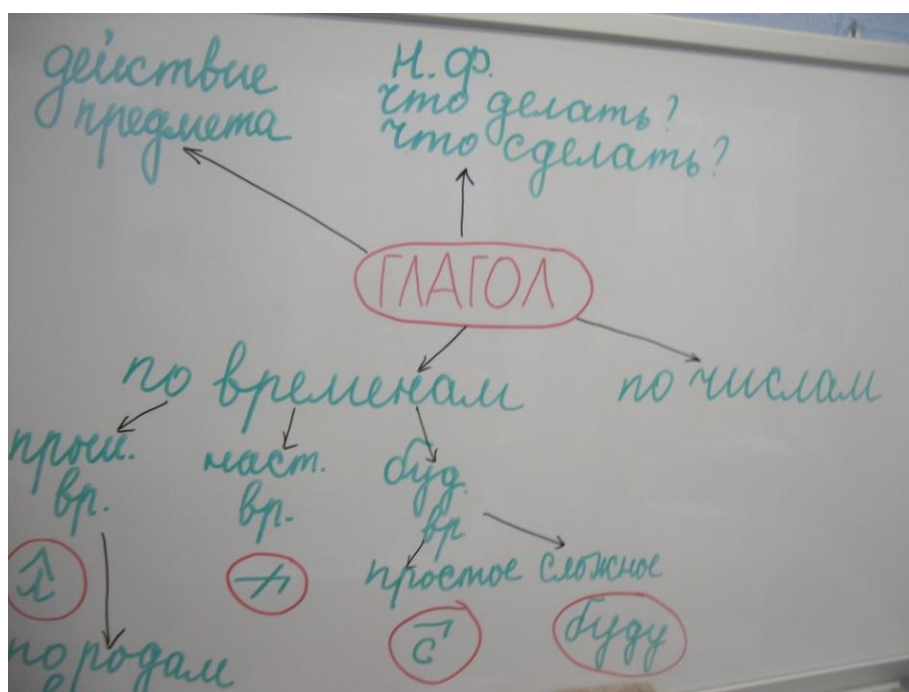 действие
предмета
Н.Ф.
что делать?
что сделать?
ГЛАГОЛ
по временам
по числам
прош.
вр.
наст.
вр.
буд.
вр.
простое сложное
л
с
буду
по родам